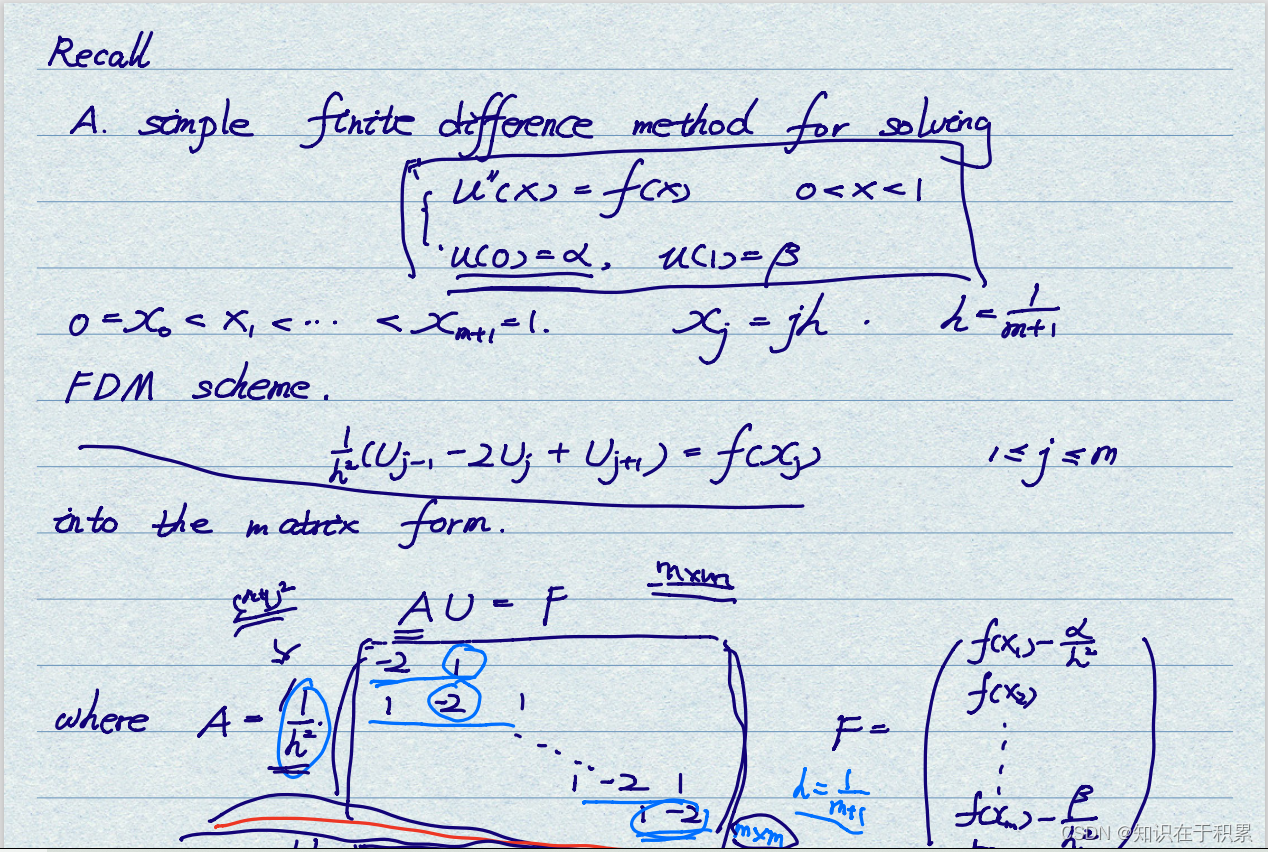 Recall
A. simple finite difference method for solving
u''(x) = f(x) 0 < x < 1
u(0) = α, u(1) = β
0 = x₀ < x₁ < ⋯ < xₘ₊₁ = 1. xⱼ = jh . h = 1/(m+1)
FDM scheme.
1/h² (Uⱼ₋₁ - 2Uⱼ + Uⱼ₊₁) = f(xⱼ) 1 ≤ j ≤ m
into the matrix form.
m×m
(m+1)²
A U = F
where A = 1/h² ·
-2 1
1 -2 1
⋱
1 -2 1
1 -2
m×m
h = 1/(m+1)
F =
f(x₁) - α/h²
f(x₂)
⋮
f(xₘ) - β/h²
CSDN @知识在于积累